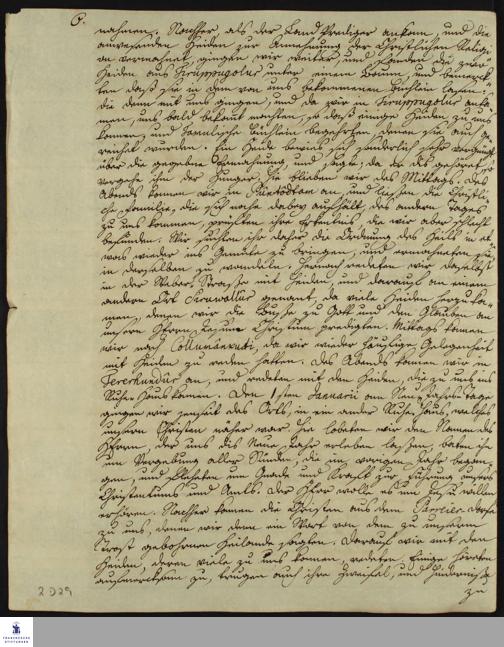 6.
nahmen. Nachher, als der Land-Prediger ankam, und die
anwesenden Heiden zur Annehmung der Christlichen Religi-
on vermahnet, gingen wir weiter, und fanden die zwey
Heiden aus Kruppugotur unter einem Baum, und bemerck-
ten daß sie in dem von uns bekommenen Büchlein lasen:
die denn mit uns gingen, und da wir in Kruppugotur anka-
men, uns bald bekant machten, so daß einige Heiden zu uns
kamen, und Tamulische Büchlein begehrten, denen sie auch ge-
reichet wurden. Ein Heide bewies sich sonderlich sehr vergnügt
über die gegebene Vermahnung, und sagte, da er das gehöret, so
vergehe ihm der Hunger. Hie blieben wir des Mittags. Des
Abends kamen wir in an, und liessen die Christli-
che Familie, die sich nahe dabey aufhält, des andern Tages
zu uns kommen, prüfften ihre Erkentnis die wir aber schlecht
befunden. Wir suchten ihr daher die Ordnung des Heils in et-
was wieder ins Gemüthe zu bringen, und ermahneten sie
in derselben zu wandeln. Hernach redeten wir daselbst
in der Weber-Strasse mit Heiden, und darauf an einem
andern Ort genant, da viele Heiden herzu ka-
men, denen wir die Busse zu Gott und den Glauben an
unsern Herrn Jesum Christum predigten. Mittags kamen
wir nach da wir wieder häufige Gelegenheit
mit Heiden zu reden hatten. Des Abends kamen wir in
an, und redeten mit den Heiden, die zu uns ins
Ruhe-Haus kamen. Den 1sten Januarii am Neu-Jahrs-tage
gingen wir jenseit des Orts, in ein ander Ruhe-Haus, welches
unsern Christen näher war. Hie lobeten wir den Namen des
HErrn, der uns dis Neue Jahr erleben lassen, baten ihn
um Vergebung aller Sünden, die im vorigen Jahr began-
gen, und fleheten um Gnade und Krafft zur Führung unsers
Christentums und Amts. Der HErr wolle es um Jesu willen
erhören. Nachher kamen die Christen aus dem Parreier-dorfe
zu uns, denen wir denn ein Wort von dem zu unserm
Trost gebohrnen Heilande sagten. Darauf wir mit den
Heiden, deren viele zu uns kamen, redeten. Einige hörten
aufmercksam zu, trugen auch ihre Zweifel, und Hindernisse
zu
2 D29